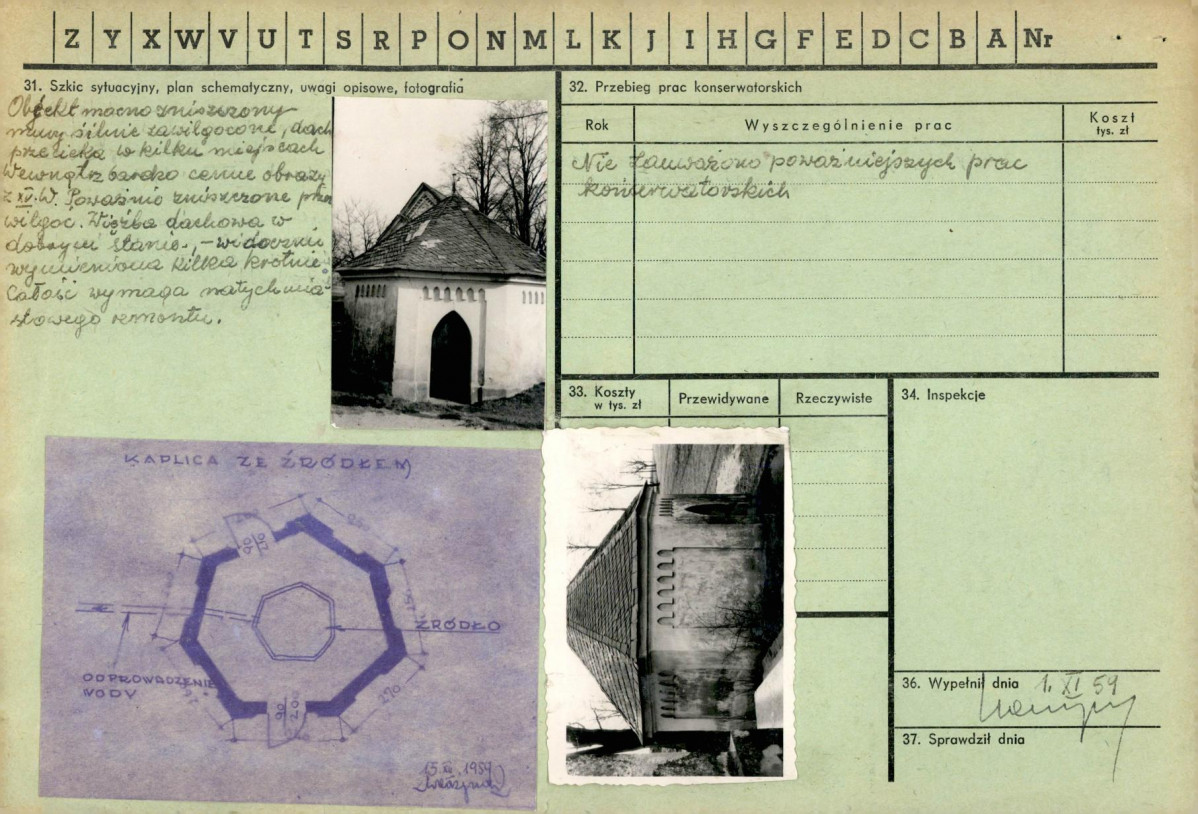 Z Y X W V U T S R P O N M L K J I H G F E D C B A Nr
31. Szkic sytuacyjny, plan schematyczny, uwagi opisowe, fotografia
Obiekt mocno zniszczony
mury silnie zawilgocone, dach
przecieka w kilku miejscach
Wewnątrz bardzo cenne obrazy
z XV. W. Poważnie zniszczone przez
wilgoć. Więźba dachowa w
dobrym stanie, – widocznie
wymieniona kilka krotnie.
Całość wymaga natychmia-
stowego remontu.
32. Przebieg prac konserwatorskich
Rok
Wyszczególnienie prac
Koszt
tys. zł
Nie zauważono poważniejszych prac
konserwatorskich
33. Koszty
w tys. zł
Przewidywane
Rzeczywiste
34. Inspekcje
36. Wypełnił dnia 1. XI 59
37. Sprawdził dnia
KAPLICA ZE ŹRÓDŁEM
90
200
ŹRÓDŁO
ODPROWADZENIE
WODY
90
200
270
1959